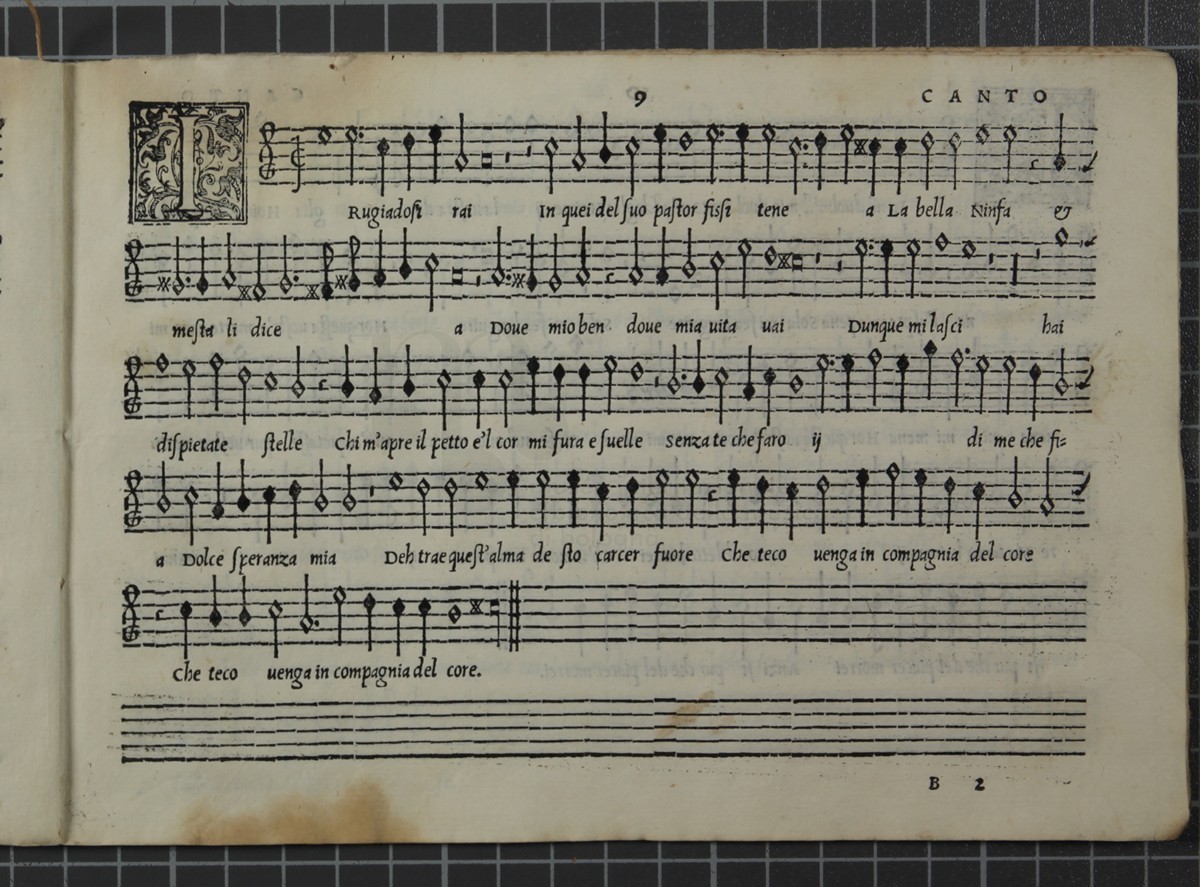 9 CANTO
I Rugiadosi rai In quei del suo pastor fissi tene a La bella Ninfa &
mesta li dice a Doue mio ben doue mia uita uai Dunque mi lasci hai
dispietate stelle Chi m'apre il petto e'l cor mi fura e suelle Senza te che faro ij di me che fi=
a Dolce speranza mia Deh trae quest'alma de sto carcer fuore Che teco uenga in compagnia del core
Che teco uenga in compagnia del core.
B 2